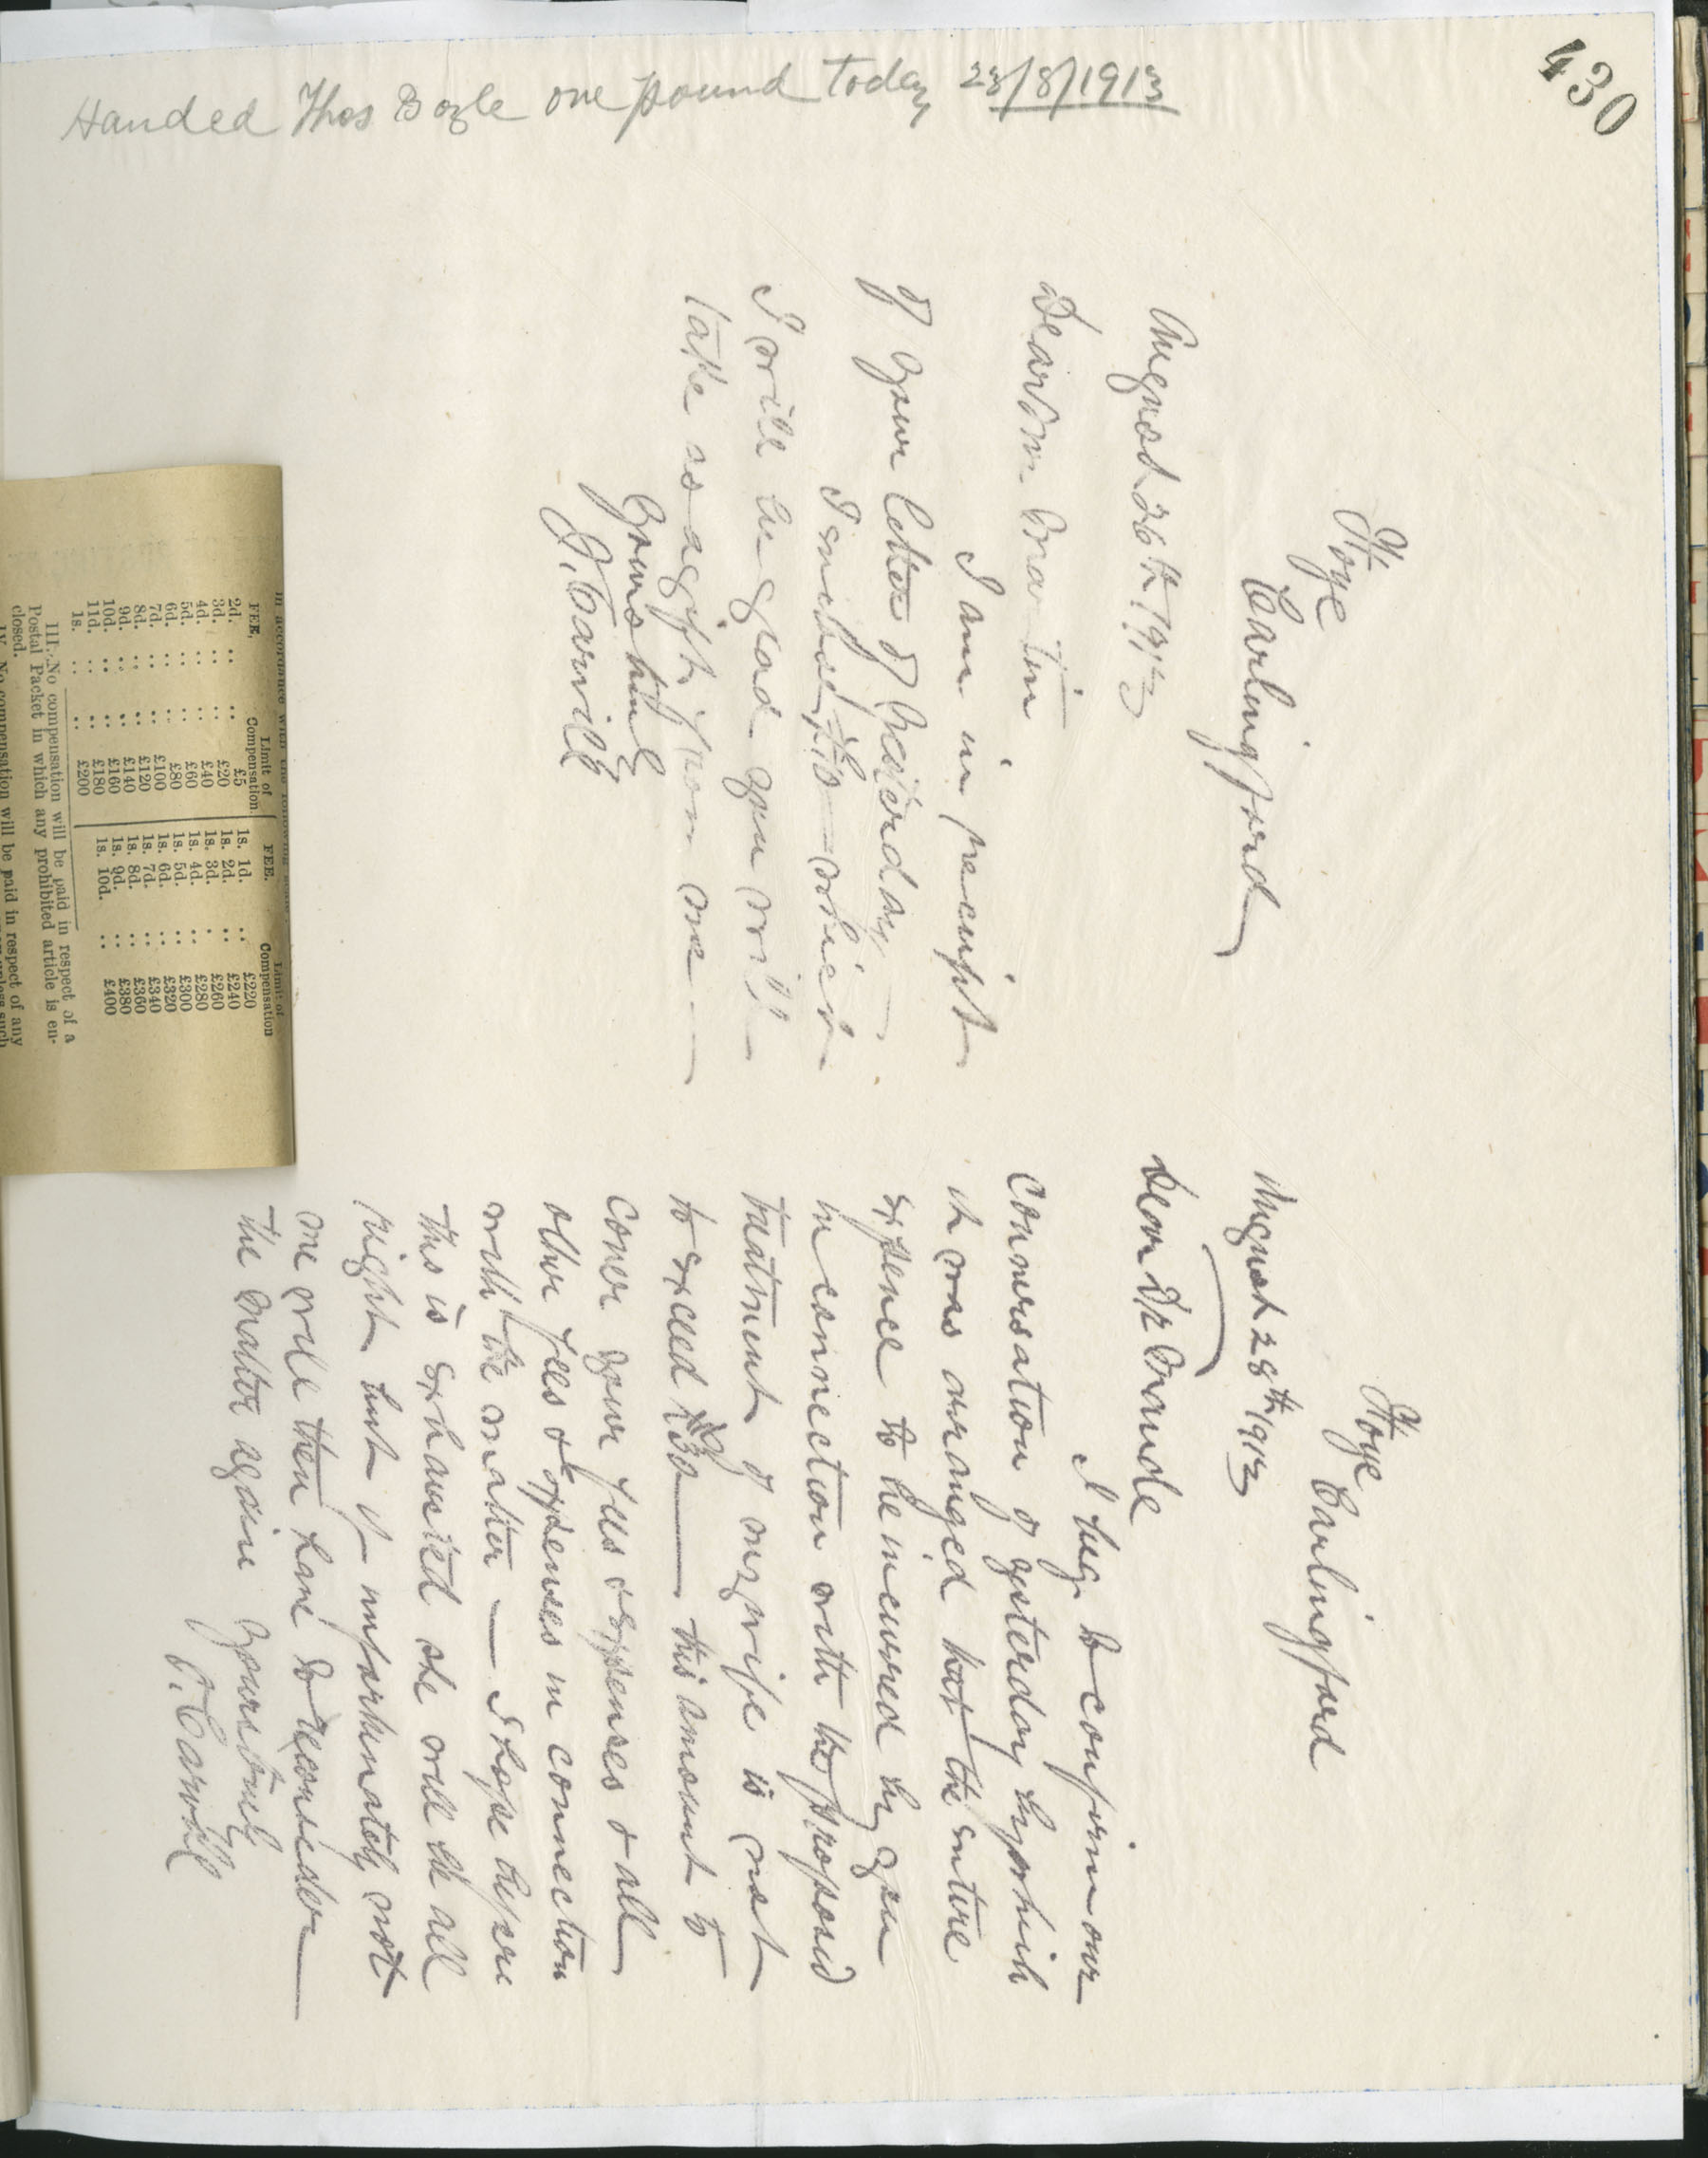 430
Handed Thos Bogle one pound today 23/8/1913
Foye
Carlingford
August 26th 1913
Dear Mr. Martin
I am in receipt
of your letter of yesterday
I enclose £10 - which
I will be glad you will
take as a gift from me —
Yours truly
J. Carvill
Foye
Carlingford
August 28th 1913
Dear Dr Maude
I beg to confirm our
conversation of yesterday by which
it was arranged that the entire
expence to be incurred by you
in connection with the proposed
treatment of my wife is not
to exceed £30 — this amount to
cover your fees & expenses & all
other fees & expenses in connection
with the matter — I hope before
this is exhausted she will be all
right but if unfortunately not
me will then have to reconsider
the matter again Yours truly
J. Carvill
in accordance with the following
FEE. Limit of Compensation. FEE. Limit of Compensation
2d. .. .. £5 1s. 1d. .. £220
3d. .. .. £20 1s. 2d. .. £240
4d. .. .. £40 1s. 3d. .. £260
5d. .. .. £60 1s. 4d. .. £280
6d. .. .. £80 1s. 5d. .. £300
7d. .. .. £100 1s. 6d. .. £320
8d. .. .. £120 1s. 7d. .. £340
9d. .. .. £140 1s. 8d. .. £360
10d. .. .. £160 1s. 9d. .. £380
11d. .. .. £180 1s. 10d. .. £400
1s. .. .. £200
III.-No compensation will be paid in respect of a
Postal Packet in which any prohibited article is en-
closed.
IV. No compensation will be paid in respect of any